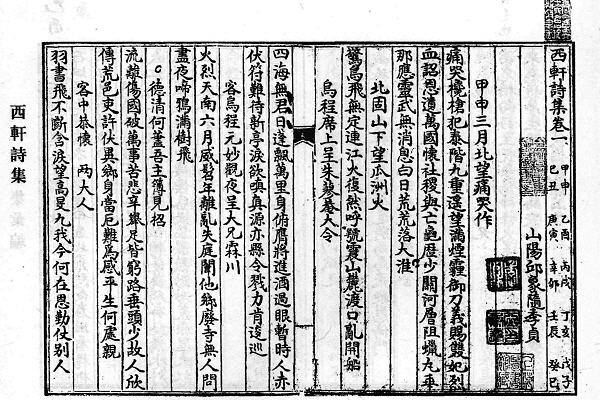 西軒詩集卷一
甲申 乙酉 丙戌 丁亥 戊子
己丑 庚寅 辛卯 壬辰 癸巳
山陽邱象隨季貞
甲申三月北望痛哭作
痛哭欃槍犯泰階九重遥望滿煙霾御刀義賜雙妃烈
血詔恩遺萬國懷社稷與亡龜歷少關河層阻蠟丸乖
那應靈武無消息白日荒荒落大淮
北固山下望瓜洲火
驚烏飛無定連江火復然呼號震山麓渡口亂開船
烏程席上呈朱蓼菴大令
四海無君日逢飄萬里身俯膺將進酒過眼暫時人赤
伏符難待新亭淚欲嶼真源亦縣令戮力肯逡巡
客烏程元妙觀夜呈大兄霖川
火烈天南六月威髫年離亂失庭闈他鄉廢寺無人問
盡夜啼鴉滿樹飛
德清何蓋吾主簿見招
流離傷國破萬事苦悲辛舉足皆窮路垂頭少故人欣
傳荒邑吏許伏異鄉身當厄難為感平生何處親
客中恭懷 兩大人
羽書飛不斷含淚望高旻九我今何在恩勤仗别人
西軒詩集